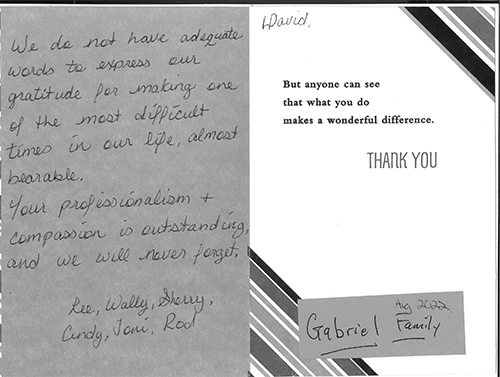 We do not have adequate
words to express our
gratitude for making one
of the most difficult
times in our life, almost
bearable.
Your professionalism +
compassion is outstanding,
and we will never forget.
Lee, Wally, Sherry,
Cindy, Toni, Rod
David,
But anyone can see
that what you do
makes a wonderful difference.
THANK YOU
Aug 2022
Gabriel Family